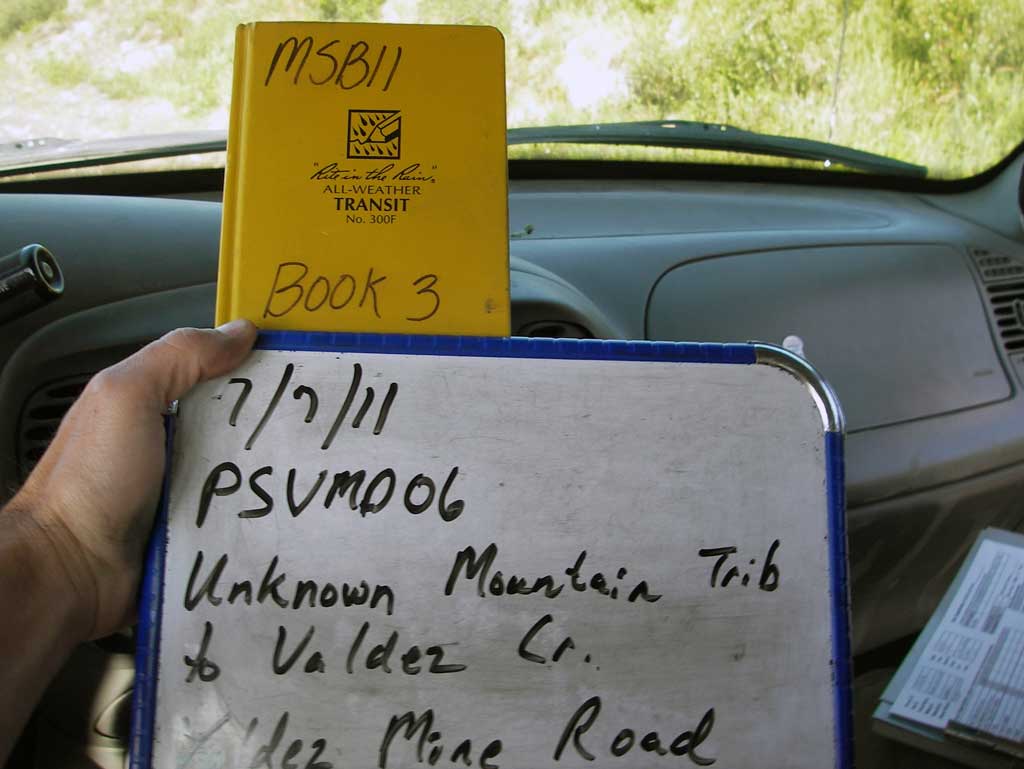 MSB11
"Rite in the Rain"®
ALL-WEATHER
TRANSIT
No. 300F
BOOK 3
7/7/11
PSVMD06
Unknown Mountain Trib
to Valdez Cr.
Mine Road